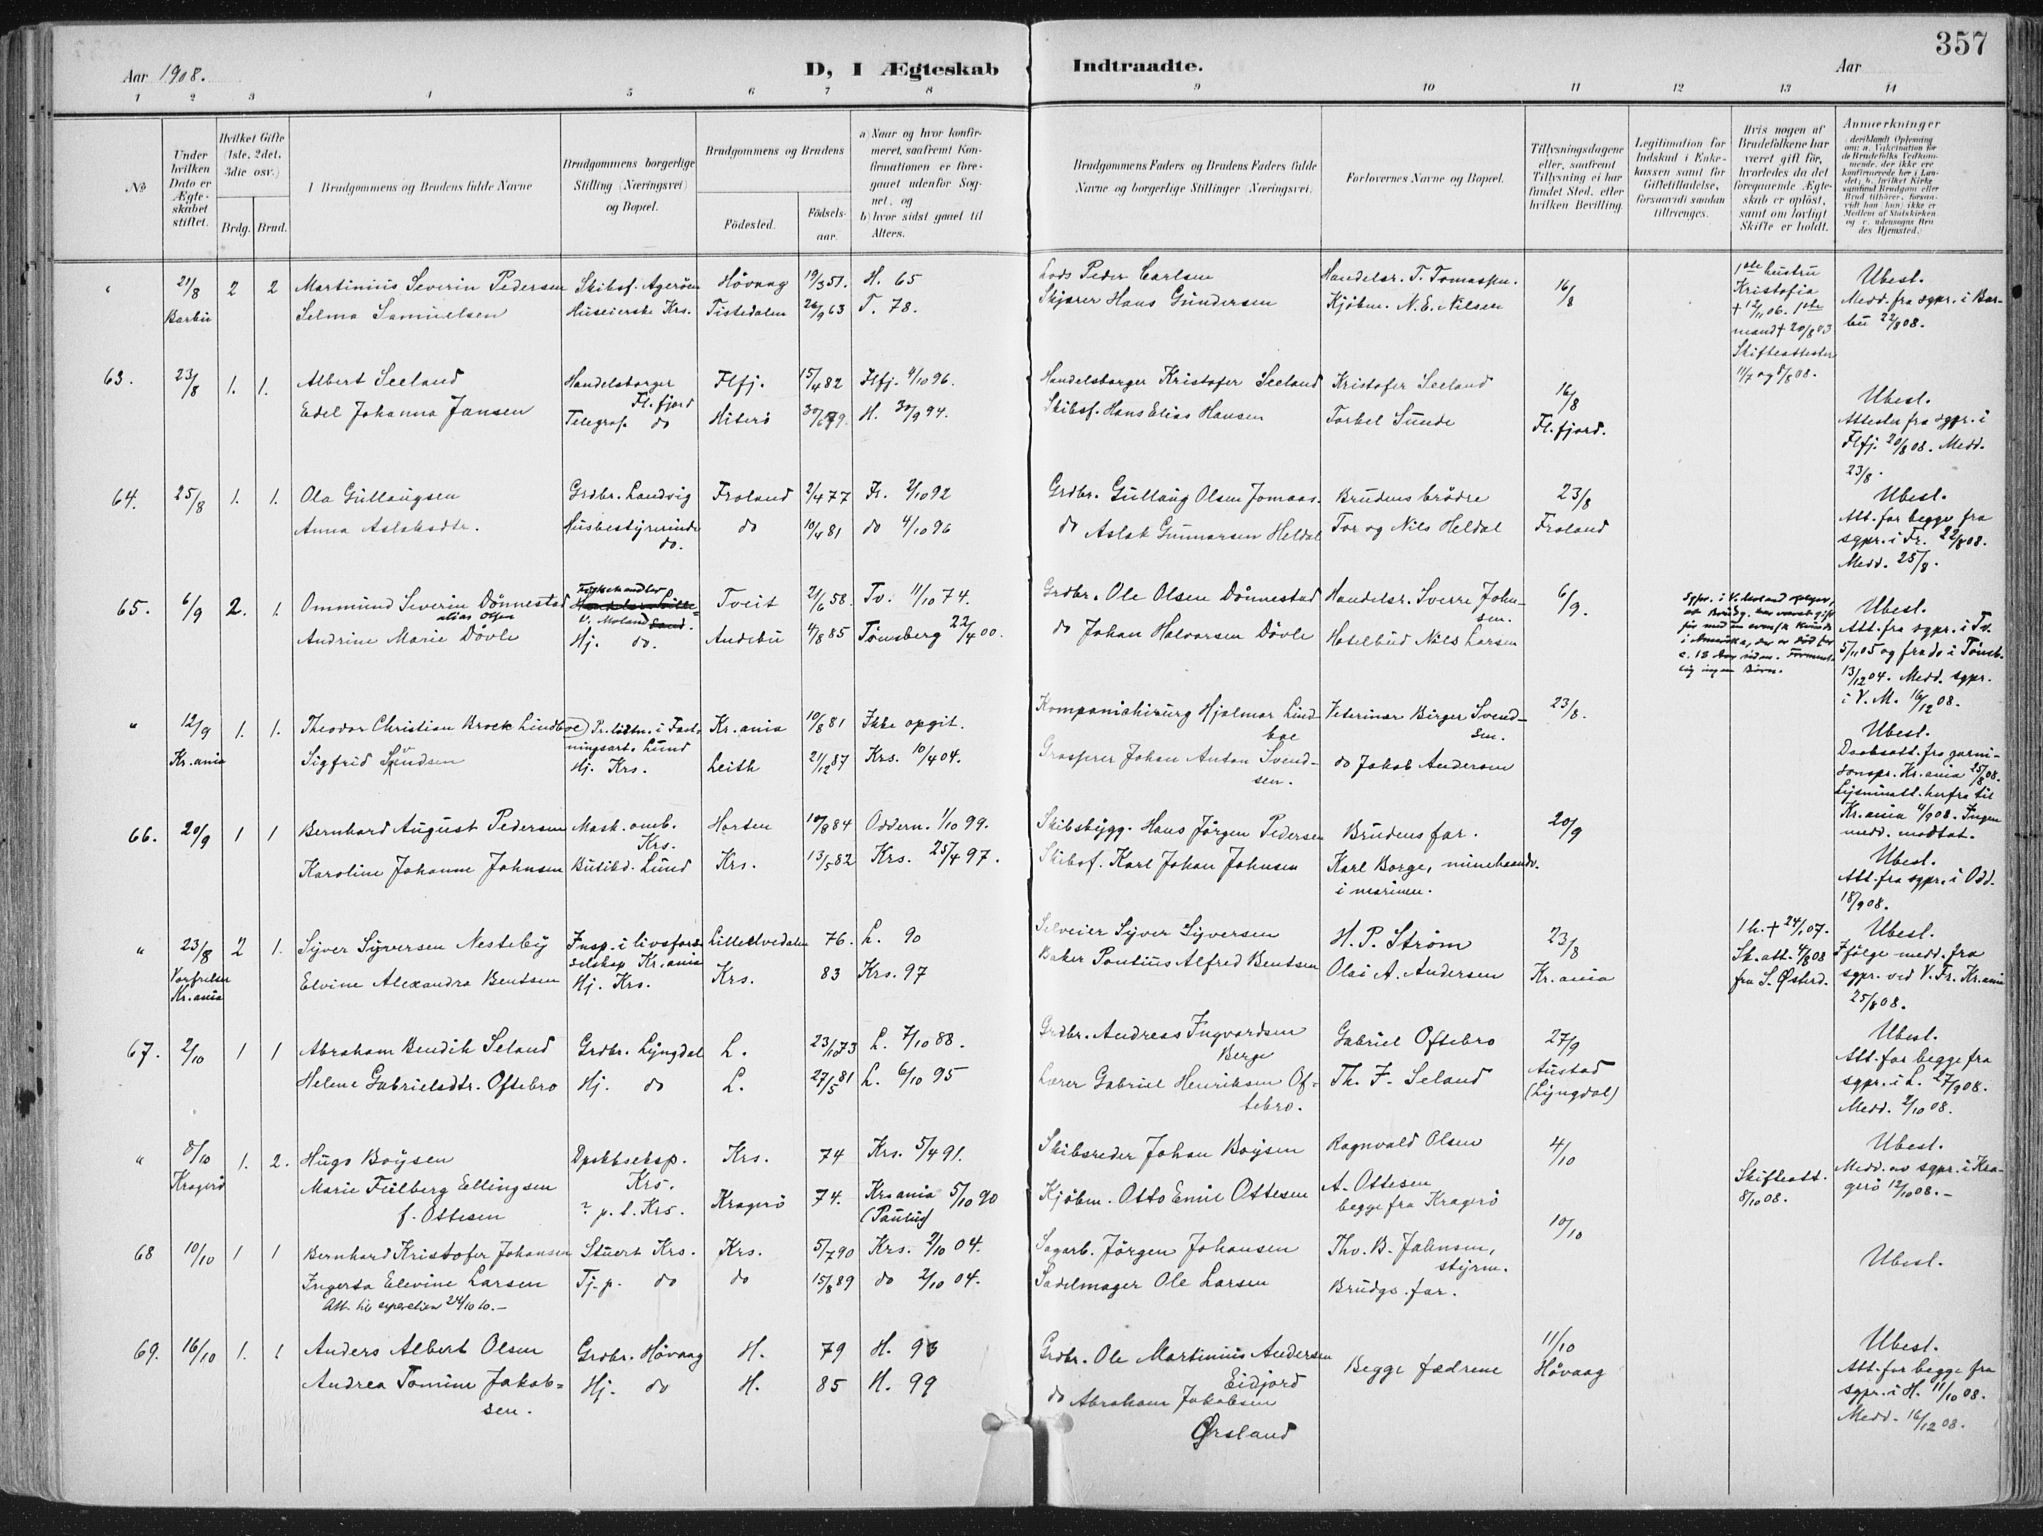 357
Aar 1908.
D, I Ægteskab Indtraadte.
Aar
1 2 3 4 5 6 7 8 9 10 11 12 13 14
No
Under hvilken Dato er Ægteskabet stiftet.
Hvilket Gifte (1ste, 2det, 3die osv.)
Brdg. Brud.
1 Brudgommens og Brudens fulde Navne
Brudgommens borgerlige Stilling (Næringsvei) og Bopæl.
Brudgommens og Brudens
Födested. Födselsaar.
a) Naar og hvor konfirmeret, saafremt Konfirmationen er foregaaet udenfor Sognet, og
b) hvor sidst gaaet til Alters.
Brudgommens Faders og Brudens Faders fulde Navne og borgerlige Stillinger (Næringsvei)
Forlovernes Navne og Bopæl.
Tillysningsdagene eller, saafremt Tillysning ei har fundet Sted, efter hvilken Bevilling.
Legitimation for Indskud i Enkekassen samt for Giftetilladelse, forsaavidt saadan tiltrænges.
Hvis nogen af Brudefolkene har været gift för, hvorledes da det foregaaende Ægteskab er oplöst, samt om lovligt Skifte er holdt.
Anmærkninger
" 21/8 Barbu 2 2 Martinius Severin Pedersen Skibsf. Agerøen Høvaag 19/3 51. H. 65 Lods Peder Carlsen Handelsr. T. Tomassen. 16/8
Selma Samuelsen Huseierske Krs. Tistedalen 26/9 63 T. 78. Skjærer Hans Gundersen Kjøbm. N. E. Nilsen
1ste hustru Kristofia + 12/11 06. 1ste mand + 20/8 03 Skifteattester 11/7 og 5/8 08.
Ubest. Medd. fra sgpr. i Barbu 22/8 08.
63. 23/8 1. 1. Albert Seeland Handelsborger Fl.fjord Flfj. 15/4 82 Flfj. 4/10 96. Handelsborger Kristofer Seeland Kristofer Seeland 16/8 Fl.fjord.
Edel Johanna Jansen Telegraf. do Hiterø 30/6 79. H. 30/9 94. Skibsf. Hans Elias Hansen Torkel Sunde
Ubest. Attester fra sgpr. i Flfj. 20/8 08. Medd. 23/8.
64. 25/8 1. 1. Ola Gullaugsen Grdbr. Landvig Froland 2/4 77 Fr. 2/10 92 Grdbr. Gullaug Olsen Jomaas. Brudens brødre 23/8 Froland
Anna Aslaksdtr. Husbestyrerinde do. do 10/4 81 do 4/10 96 do Aslak Gunnarsen Heldal Tor og Nils Heldal
Ubest. Att. for begge fra sgpr. i Fr. 22/8 08. Medd. 25/8.
65. 6/9 2. 1. Ommund Severin Dønnestad alias Olsen V. Moland Tveit 21/6 58. Tv. 11/10 74. Grdbr. Ole Olsen Dønnestad Handelsr. Sverre Johnsen. 6/9.
Andrine Marie Døvle Hj. do. Andebu 4/8 85 Tønsberg 22/4 00. do Johan Halvorsen Døvle Hotelbud Nils Larsen
Sgpr. i V. Moland oplyser, at Brudg. har været gift før med en svensk kvinde i Amerika, der er død for c. 12 Aar siden. Forment­lig ingen Børn.
Ubest. Att. fra sgpr. i Tv. 5/11 05 og fra do i Tønsb. 13/12 04. Medd. sgpr. i V. M. 16/12 08.
" 12/9 Kr.ania 1. 1. Theodor Christian Brock Lindboe Pr. løitn. i Fæstningsart. Lund Kr.ania 10/8 81 Ikke opgit. Kompanichirurg Hjalmar Lindboe Veterinær Birger Svendsen. 23/8.
Sigfrid Svendsen Hj. Krs. Leith 21/12 87 Krs. 10/4 04. Grosserer Johan Anton Svendsen. do Jakob Anderson
Ubest. Daabsatt. fra garnisonspr. Kr.ania 25/8 08. Lysninatt. herfra til Kr.ania 4/9 08. Ingen medd. modtat.
66. 20/9 1 1 Bernhard August Pedersen Mask. omb. Krs. Horten 10/8 84 Oddern. 1/10 99. Skibsbygg. Hans Jørgen Pedersen Brudens far. 20/9
Karoline Johanne Johnsen Butikd. Lund Krs. 13/5 82 Krs. 25/4 97. Skibsf. Karl Johan Johnsen Karl Borge, minehaandv. i marinen.
Ubest. Att. fra sgpr. i Odd. 18/9 08.
" 23/8 Vorfrelser Kr.ania 2 1. Syver Syversen Nesteby Insp. i livsforsselskap Kr.ania Lilleelvedalen 76. L. 90 Selveier Syver Syversen H. P. Strøm 23/8 Kr.ania
Elvine Alexandra Bentsen Hj. Krs. Krs. 83 Krs. 97 Baker Pontius Alfred Bentsen Olai A. Andersen
1 h. + 24/1 07. Sk. att. 4/8 08 fra S. Østerd.
Ubest. Ifølge medd. fra sgpr. ved V. Fr. Kr.ania 25/8 08.
67. 2/10 1 1 Abraham Bendik Seland Grdbr. Lyngdal L. 23/10 73 L. 7/10 88. Grdbr. Andreas Ingvardsen Berge Gabriel Oftebro 27/9 Austad (Lyngdal)
Helene Gabrielsdtr. Oftebro Hj. do L. 27/5 81 L. 6/10 95 Lærer Gabriel Henriksen Oftebro. Th. F. Seland
Ubest. Att. for begge fra sgpr. i L. 27/9 08. Medd. 2/10 08.
" 8/10 Kragerø 1. 2. Hugo Boysen Dpskbseksp. Krs. Krs. 74 Krs. 5/4 91. Skibsreder Johan Boysen Ragnvald Olsen 4/10
Marie Feilberg Ellingsen f. Ottesen ? p. t. Krs. Kragerø 74. Krsania 5/10 90 (Paulus) Kjøbm. Otto Emil Ottesen A. Ottesen begge fra Kragerø
Skifteatt. 8/10 08.
Ubest. Medd. av sgpr. i Kragerø 12/10 08. -
68 10/10 1 1 Bernhard Kristofer Johansen Stuert Krs. Krs. 5/7 90 Krs. 2/10 04. Sagarb. Jørgen Johansen Thv. B. Jahnsen, styrm. 10/10
Ingerta Elevine Larsen Tj. p. do do 15/8 89 do 2/10 04. Sadelmager Ole Larsen Brudgs. far.
Att. til seperation 24/10 10. -
Ubest.
69. 16/10 1. 1 Anders Albert Olsen Grdbr. Høvaag H. 79 H. 93 Grdbr. Ole Martinius Andersen Eidjord Begge fædrene 11/10 Høvaag
Andrea Tomine Jakobsen. Hj. do H. 85 H. 99 do Abraham Jakobsen Ørsland
Ubest. Att. for begge fra sgpr. i H. 11/10 08. Medd. 16/12 08.